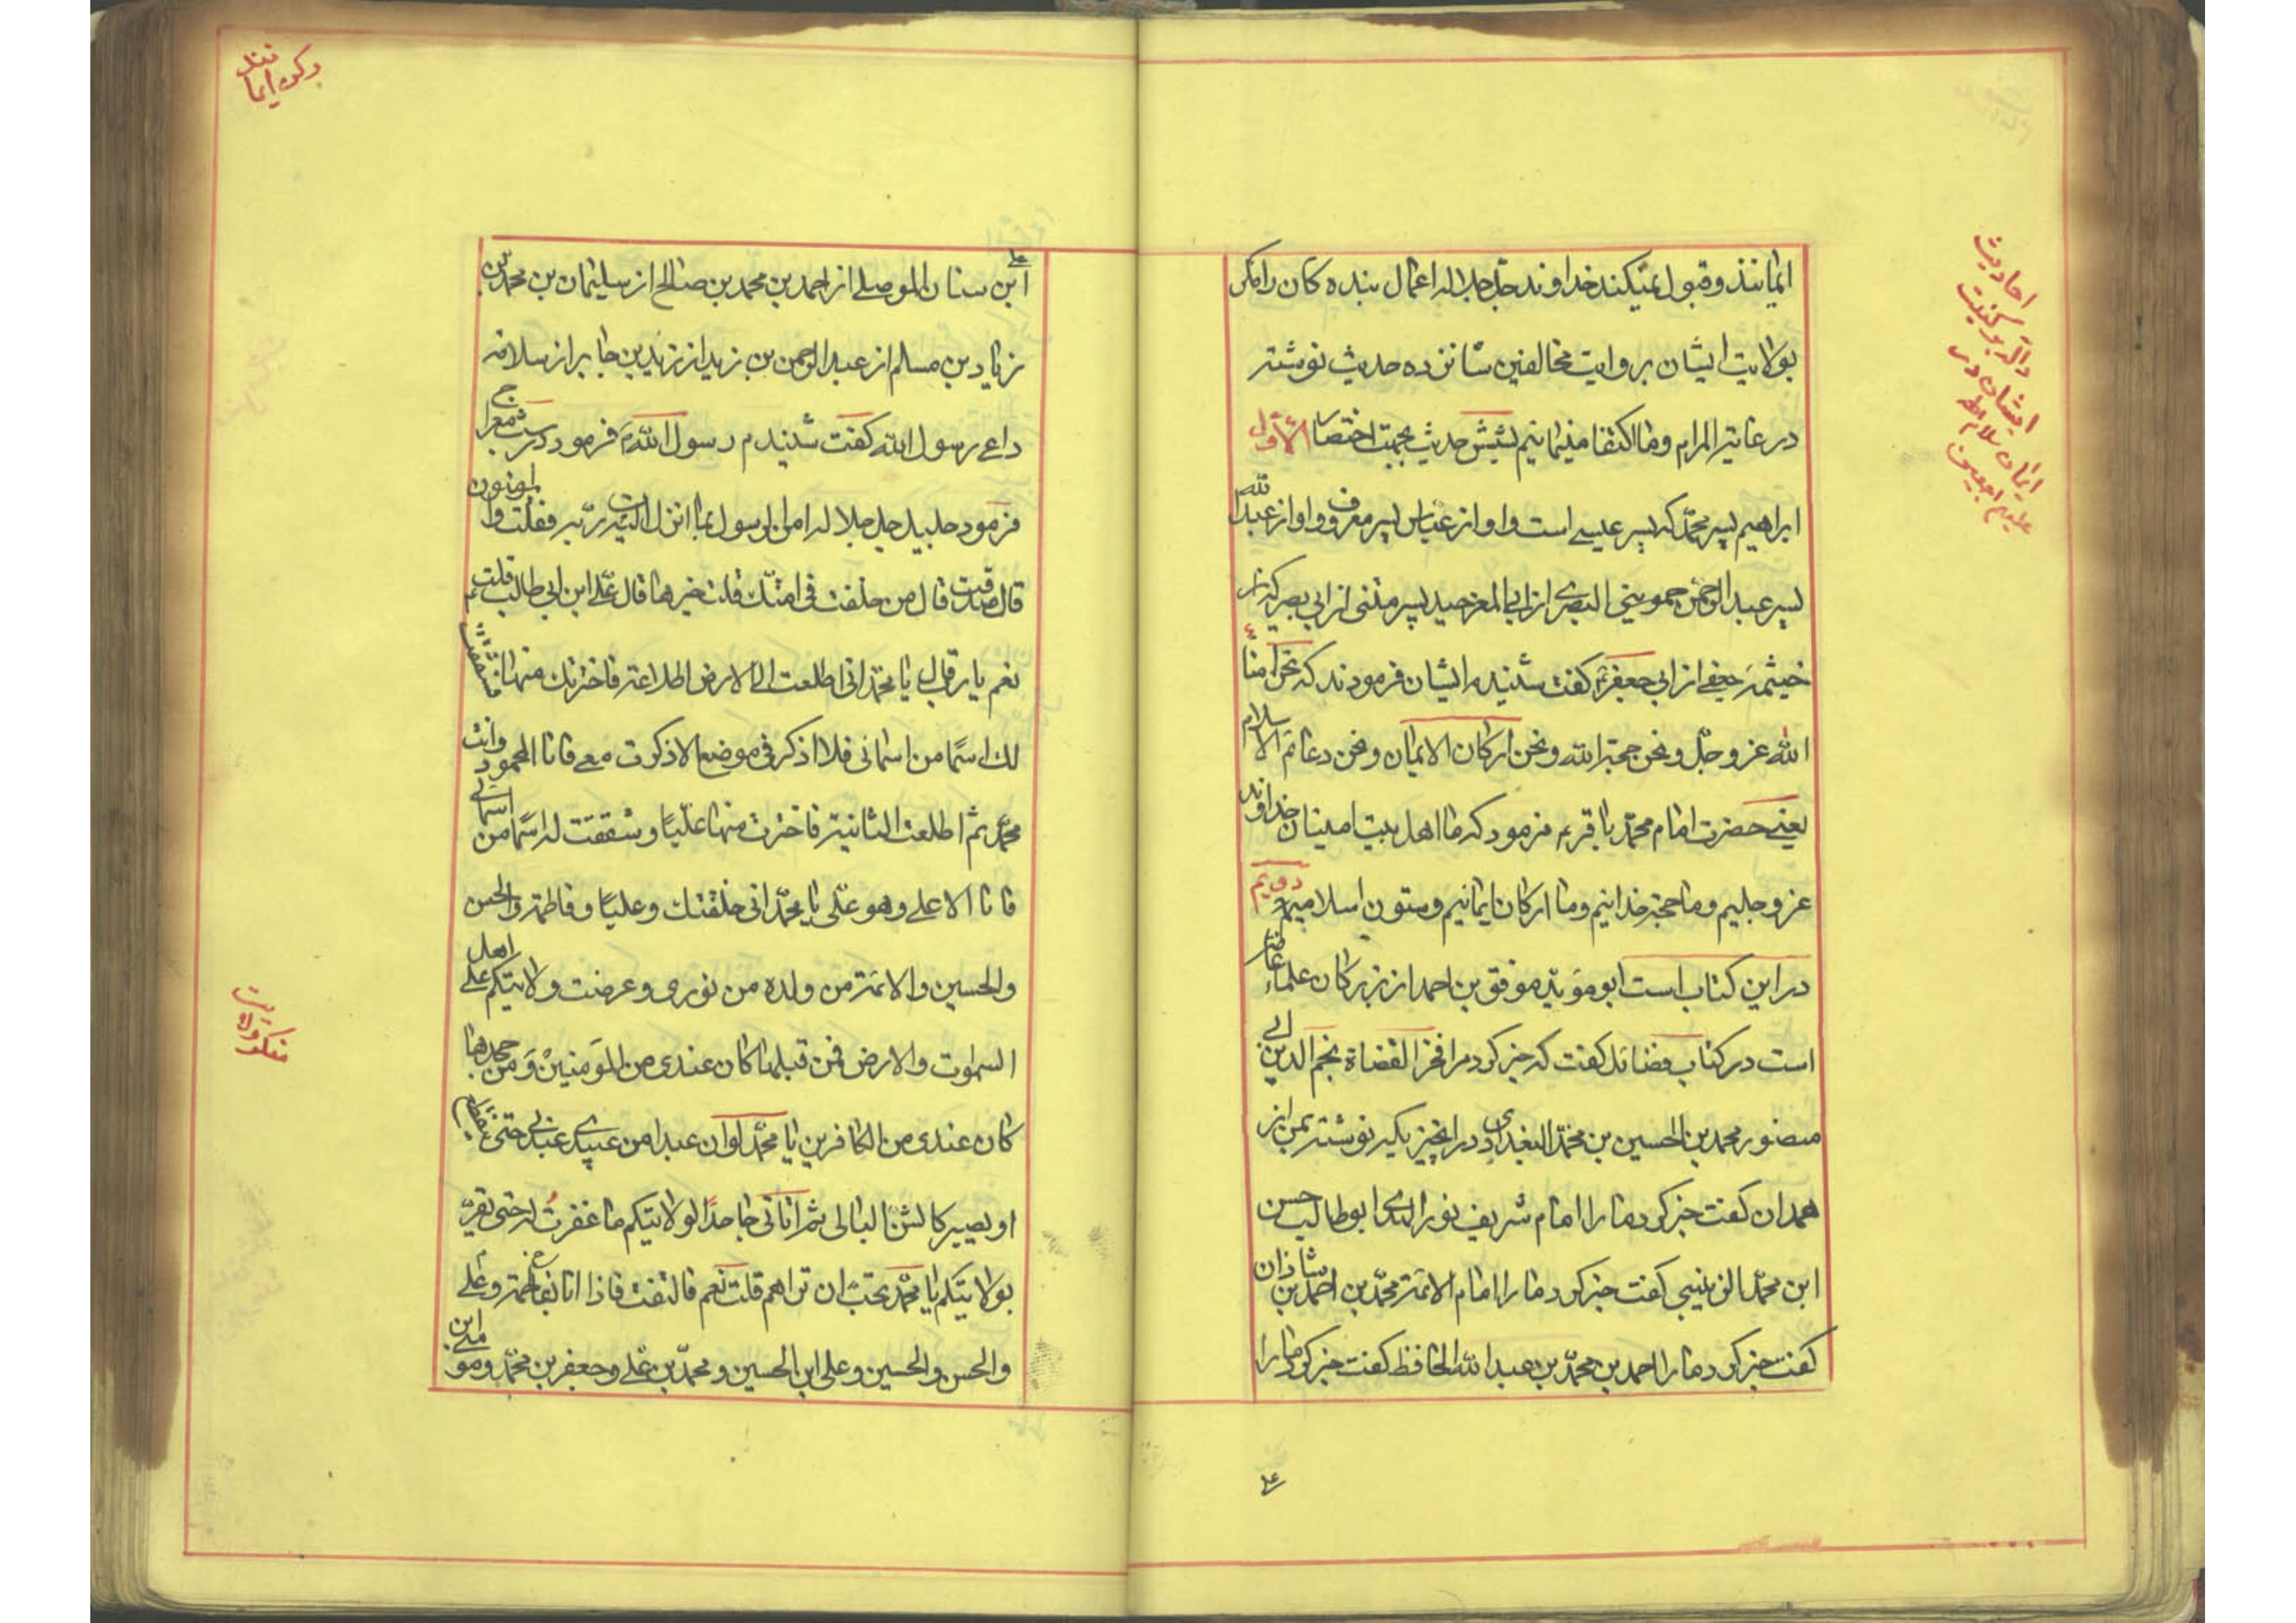 ایمانند و قبول نمیکند خداوند جل جلاله اعمال بنده کان را مکر
بولایت ایشان بروایت مخالفین شانزده حدیث نوشته
در غایة المرام و ما اکتفا مینمائیم بشش حدیث بجهت اختصار الاول
ابراهیم پسر محمد که پسر عیسی است و او از عباس پسر معروف و او از عبدالله
پسر عبد الرحمن حموینی البصری از ابی المغر حمید پسر مثنی از ابی بصیر که از
خیثمه جعفی از ابی جعفر ع کفت شنیدم ایشان فرمودند که نحن امناء
الله عز و جل و نحن حجة الله و نحن ارکان الایمان و نحن دعائم الاسلام
یعنی حضرت امام محمد باقر ع فرمود که ما اهل بیت امینان خداوند
عز و جلیم و ما حجة خدائیم و ما ارکان ایمانیم و ستون اسلامیم دویم
در این کتاب است ابو مؤید موفق بن احمد از بزرکان علماء عامه
است در کتاب فضائل کفت که خبر کرد مرا فخر القضاة نجم الدین ابی
منصور محمد بن الحسین بن محمد البغدادی در انچیزیکه نوشته بمن از
همدان کفت خبر کرد ما را امام شریف نور الهدی ابو طالب حسن
ابن محمد الزینبی کفت خبر کرد ما را امام الائمة محمد بن احمد بن شاذان
کفت خبر کرد ما را احمد بن محمد بن عبد الله الحافظ کفت خبر کرد ما را
علی
احادیث
داله بر کیفیت
ایشان در
ایمان سلام الله
علیهم اجمعین
رکن ایمانند
علی
ابن سنان الموصلی از احمد بن محمد بن صالح از سلیمان بن محمد بن
زیاد بن مسلم از عبد الرحمن بن زید از زید بن جابر از سلامه
داعی رسول الله کفت شنیدم رسول الله ص فرمود در شب معراج
فرمود جلیل جل جلاله امن الرسول بما انزل الیه من ربه فقلت والمؤمنون
قال صدقت قال من خلفت فی امتک قلت خیرها قال علی ابن ابی طالب قلت
نعم یا رب قال یا محمد انی اطلعت الی الارض اطلاعة فاخترتک منها فشققت
لک اسما من اسمائی فلا اذکر فی موضع الا ذکرت معی فانا المحمود و انت
محمد ثم اطلعت الثانیة فاخترت منها علیا و شققت له اسما من اسمائی
فانا الاعلی و هو علی یا محمد انی خلقتک و علیا و فاطمة و الحسن
و الحسین و الائمة من ولده من نوری و عرضت ولایتکم علی اهل
السموات و الارض فمن قبلها کان عندی من المؤمنین و من جحدها
کان عندی من الکافرین یا محمد لو ان عبدا من عبیدی عبدنی حتی ینقطع
او یصیر کالشن البالی ثم اتانی جاحدا لولایتکم ما غفرت له حتی یقر
بولایتکم یا محمد تحب ان تراهم قلت نعم فالتفت فاذا انا بفاطمة و علی
و الحسن و الحسین و علی ابن الحسین و محمد بن علی و جعفر بن محمد و موسی ابن